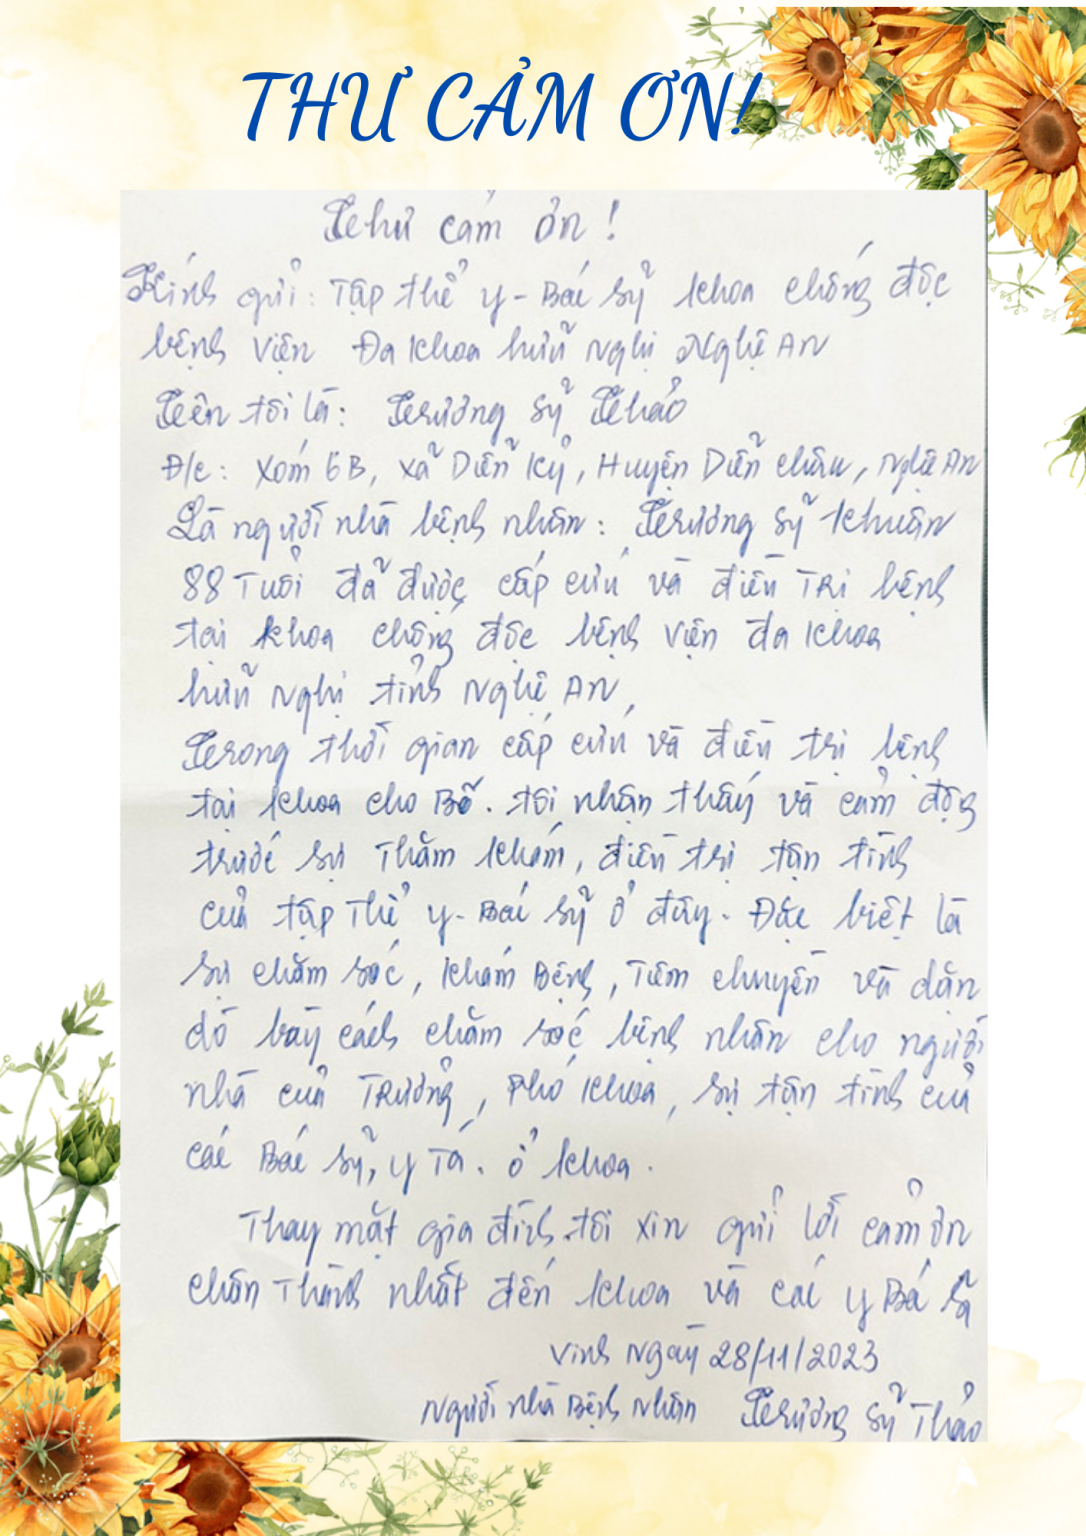 THƯ CẢM ƠN!
Thư cảm ơn!
Kính gửi: Tập thể y - Bác sỹ khoa chống độc
bệnh viện Đa khoa hữu nghị Nghệ An
Tên tôi là: Trương Sỹ Thảo
Đ/c: Xóm 6B, xã Diễn Kỷ, Huyện Diễn Châu, Nghệ An
Là người nhà bệnh nhân: Trương Sỹ Khuân
88 Tuổi đã được cấp cứu và điều Trị bệnh
tại khoa chống độc bệnh viện đa khoa
hữu nghị tỉnh Nghệ An,
Trong thời gian cấp cứu và điều trị bệnh
tại khoa cho Bố. tôi nhận thấy và cảm động
trước sự Thăm khám, điều trị tận tình
của tập Thể y - Bác sỹ ở đây. Đặc biệt là
sự chăm sóc, khám Bệnh, Tiêm chuyền và dặn
dò bày cách chăm sóc bệnh nhân cho người
nhà của Trưởng, Phó khoa, sự tận tình của
các Bác sỹ, y Tá. ở khoa.
Thay mặt gia đình. tôi xin gửi lời cảm ơn
chân Thành nhất đến khoa và các y Bác sĩ
Vinh Ngày 28/11/2023
Người nhà Bệnh Nhân Trương Sỹ Thảo